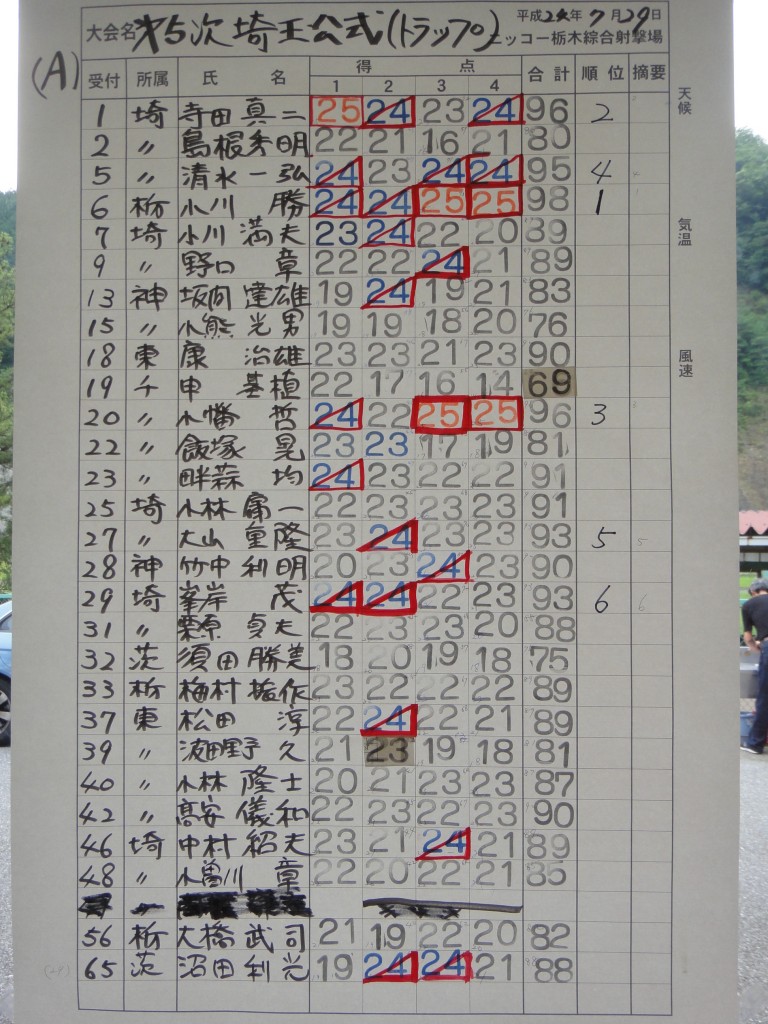 大会名 第5次埼玉公式(トラップ) 平成24年7月29日
ニッコー栃木綜合射撃場
(A)
受付 所属 氏名 得点 合計 順位 摘要
1 2 3 4
1 埼 寺田真二 25 24 23 24 96 2
2 〃 島根秀明 22 21 16 21 80
5 〃 清水一弘 24 23 24 24 95 4
6 栃 小川勝 24 24 25 25 98 1
7 埼 小川満夫 23 24 22 20 89
9 〃 野口章 22 22 24 21 89
13 神 坂間達雄 19 24 19 21 83
15 〃 小熊光男 19 19 18 20 76
18 東 康治雄 23 23 21 23 90
19 千 申基植 22 17 16 14 69
20 〃 小幡哲 24 22 25 25 96 3
22 〃 飯塚晃 23 23 17 19 81
23 〃 畔蒜均 24 23 22 22 91
25 埼 小林 一 22 23 23 23 91
27 〃 大山重隆 23 24 23 23 93 5
28 神 竹中利明 20 23 24 23 90
29 埼 峯岸茂 24 24 22 23 93 6
31 〃 栗原貞夫 22 23 23 20 88
32 茨 須田勝美 18 20 19 18 75
33 栃 梅村 作 23 22 22 22 89
37 東 松田淳 22 24 22 21 89
39 〃 波田野久 21 23 19 18 81
40 〃 小林隆士 20 21 23 23 87
42 〃 高安儀和 22 23 22 23 90
46 埼 中村紹夫 23 21 24 21 89
48 〃 小曽川章 22 20 22 21 85
56 栃 大橋武司 21 19 22 20 82
65 茨 沼田利光 19 24 24 21 88
天候
気温
風速